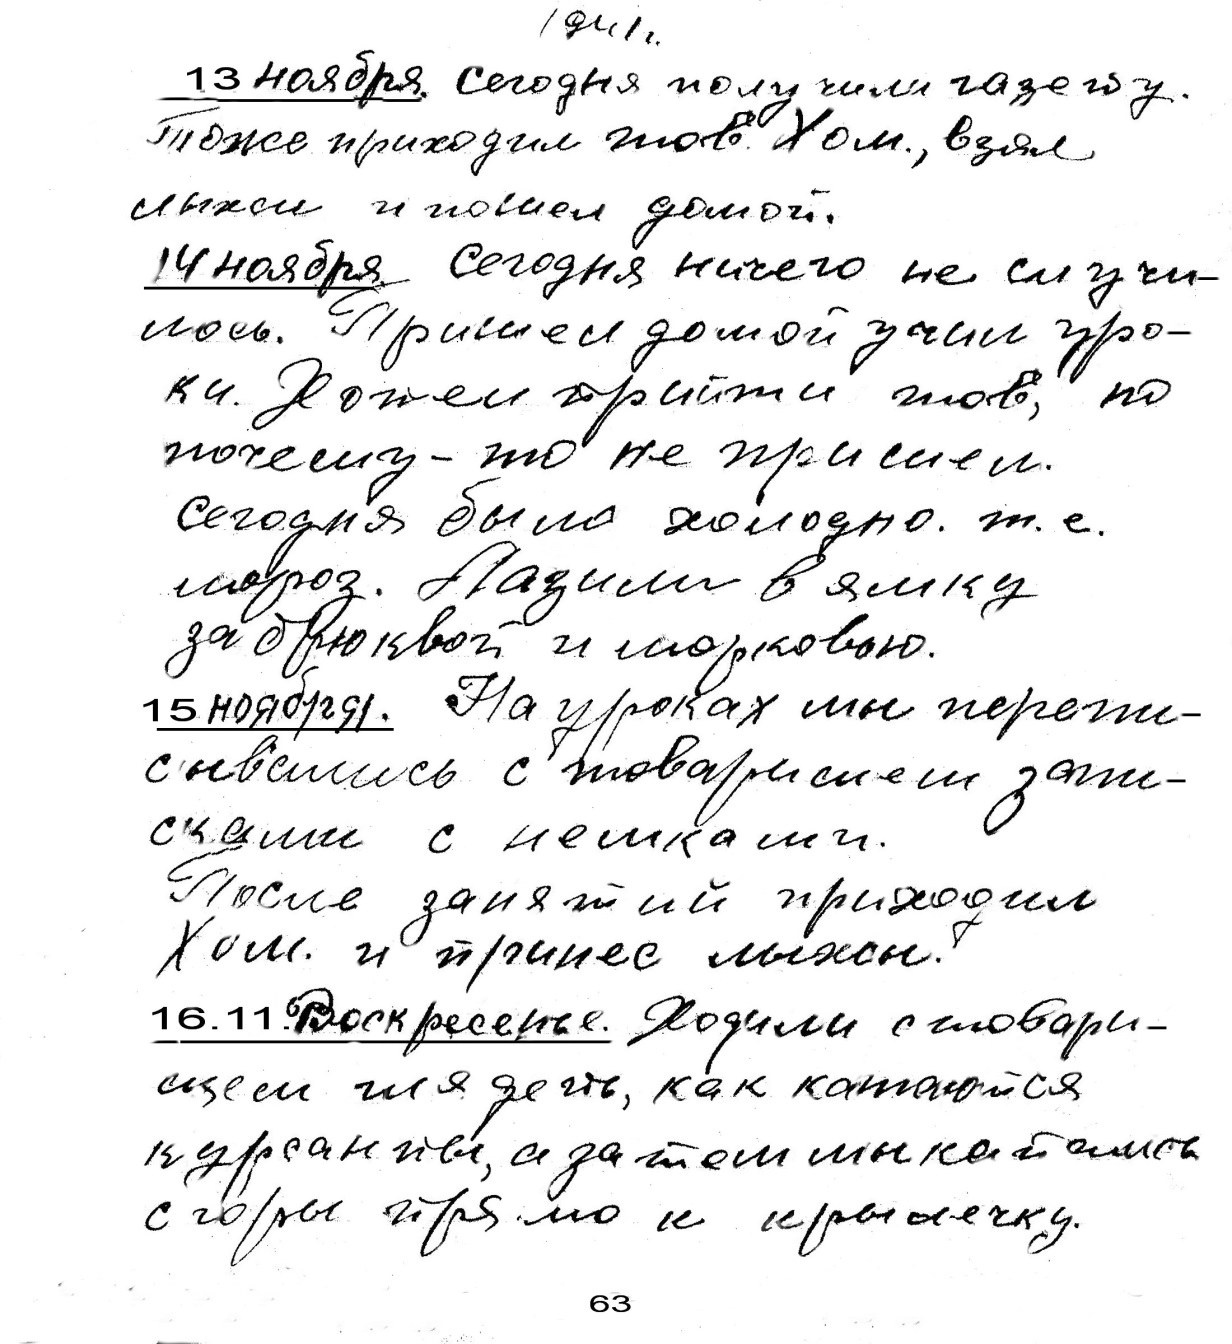 1941г.
13 ноября. Сегодня получили газету.
Тоже приходил тов. Хом., взял
лыжи и пошел домой.
14 ноября. Сегодня ничего не случи-
лось. Пришел домой учил уро-
ки. Хотел прийти тов, но
почему-то не пришел.
Сегодня было холодно. т.е.
мороз. Лазили в ямку
за брюквой и морковью.
15 ноября. На уроках мы перепи-
сывались с товарищем запи-
сками с немками.
После занятий приходил
Хом. и принес лыжи.
16.11. Воскресенье. Ходили с товари-
щем глядеть, как катаются
курсанты, а затем мы катались
с горы прямо к крылечку.
63